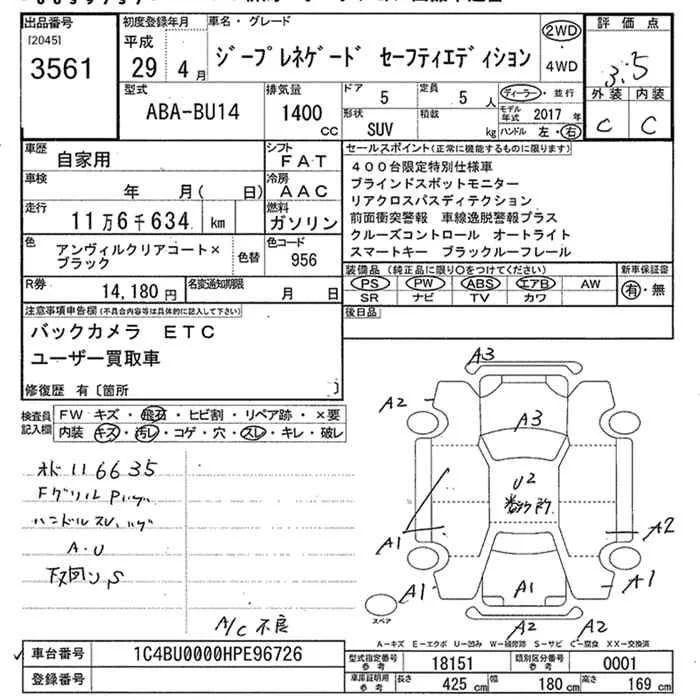 出品番号
[2045]
3561
初度登録年月
平成
29年 4月
車名・グレード
ジープレネゲード セーフティエディション
2WD
・
4WD
評価点
3.5
外装 内装
C C
型式
ABA-BU14
排気量
1400
CC
ドア
5
定員
5人
ディーラー・並行
形状
SUV
積載
kg
モデル年式 2017年
ハンドル 左・右
車歴
自家用
シフト
FAT
車検
年 月( 日)
冷房
AAC
走行
11万6千634 km
燃料
ガソリン
色
アンヴィルクリアコート×
ブラック
色替
色コード
956
R券
14,180円
名変通知期限
月 日
セールスポイント(正常に機能するものに限ります)
400台限定特別仕様車
ブラインドスポットモニター
リアクロスパスディテクション
前面衝突警報 車線逸脱警報プラス
クルーズコントロール オートライト
スマートキー ブラックルーフレール
装備品(純正品に限り○をつけてください)
PS PW ABS エアB AW
SR ナビ TV カワ
新車保証書
有・無
後日品
注意事項申告欄(不具合内容等は具体的に記入して下さい)
バックカメラ ETC
ユーザー買取車
修復歴 有〔箇所 〕
検査員
記入欄
FW キズ・飛石・ヒビ割・リペア跡・×要
内装 キズ・汚レ・コゲ・穴・スレ・キレ・破レ
116635
A・U
A/C不良
A3
A2
A3
U2
A1
A2
A1
A1
A1
A2
A2
スペア
A-キズ E-エクボ U-凹み W-補修跡 S-サビ C-腐食 XX-交換済
車台番号
1C4BU0000HPE96726
登録番号
型式指定番号
参考
18151
類別区分番号
参考
0001
車庫証明用
参考
長さ
425 cm
幅
180 cm
高さ
169 cm